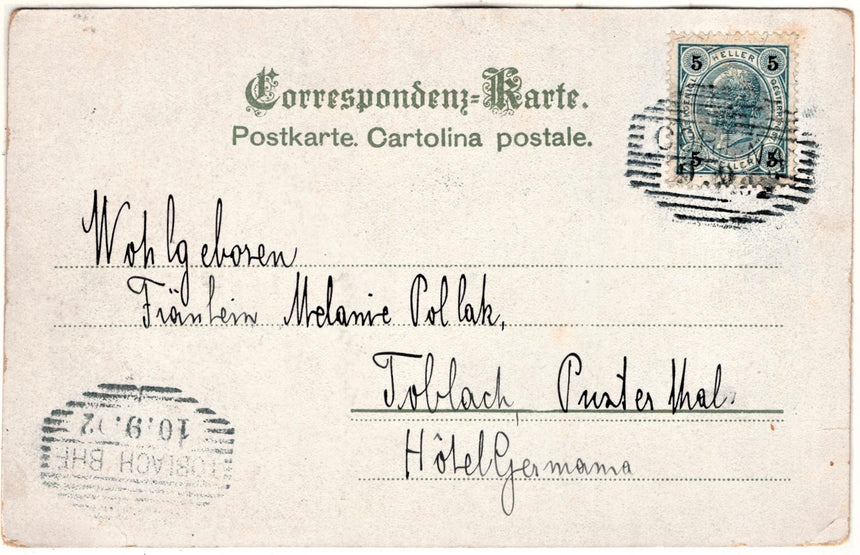 Correspondenz-Karte.
Postkarte. Cartolina postale.
5 HELLER 5
5 HELLER 5
Wohlgeboren
Fräulein Melanie Pollak,
Toblach, Pusterthal
Hôtel Germania
10.9.02
TOBLACH BHF